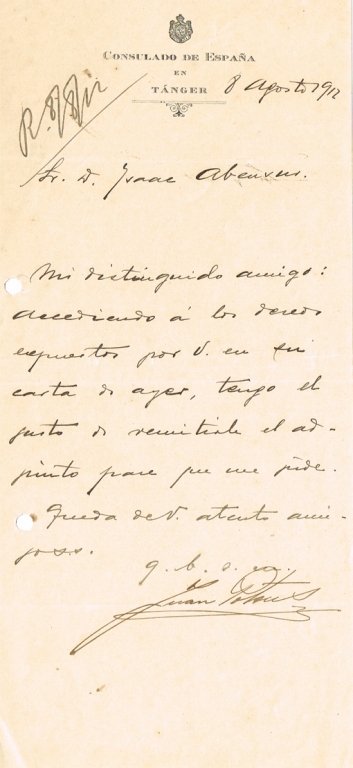 CONSULADO DE ESPAÑA
EN
TÁNGER
8 Agosto 1912
R. 8/8/12
Sr. D. Isaac Abensur.
Mi distinguido amigo:
accediendo á los deseos
expuestos por V. en su
carta de ayer, tengo el
gusto de remitirle el ad-
junto pase que me pide.
Queda de V. atento ami-
go s.s.
q. b. s. m.
Juan